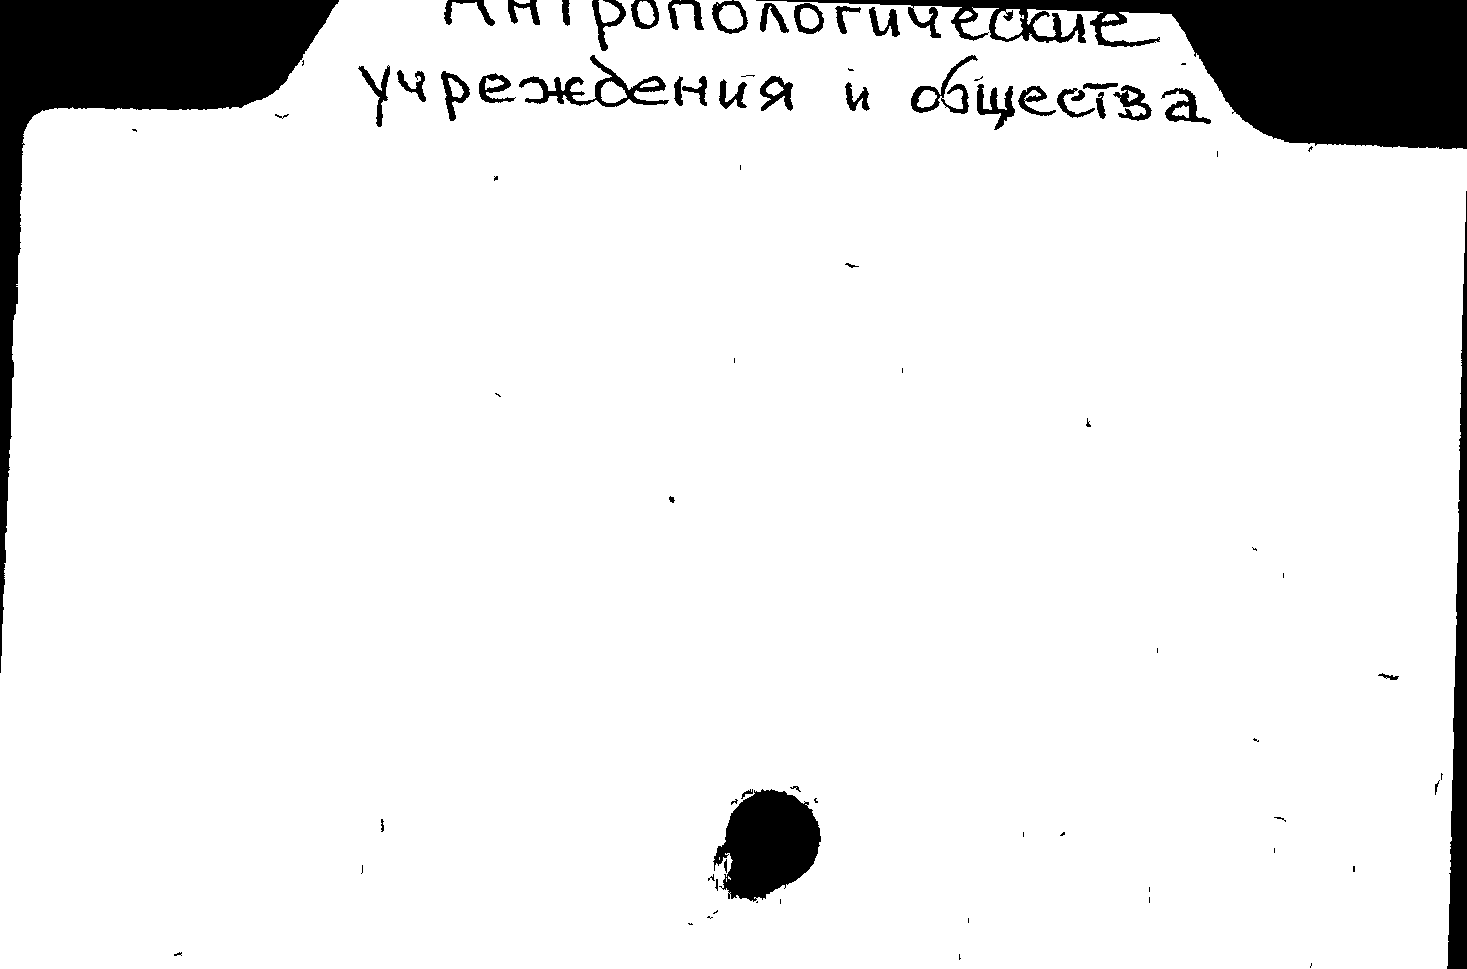 Антропологические
учреждения и общества